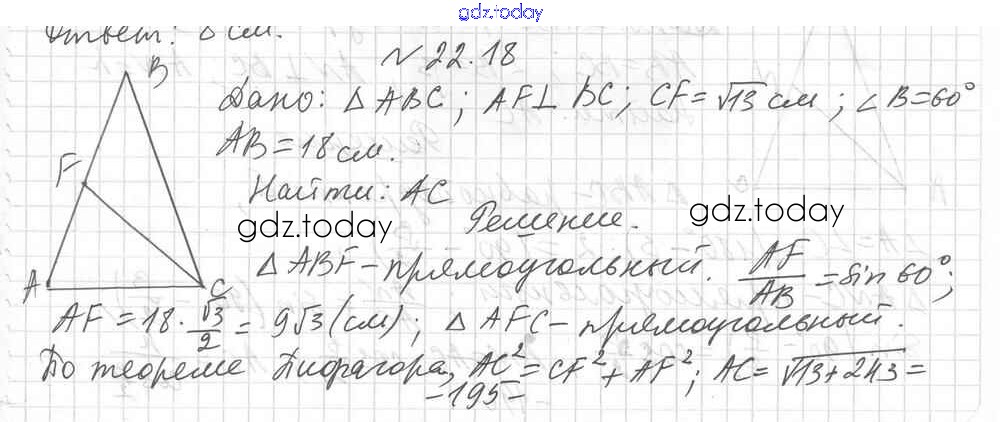 gdz.today
Ответ: △ см.
№ 22.18
B
Дано: △ ABC; AF⊥ BC; CF = √13 см; ∠B=60°
AB = 18 см.
F
Найти: AC
gdz.today
Решение.
gdz.today
△ ABF – прямоугольный. AF/AB = sin 60°;
A
C
AF = 18 · √3/2 = 9√3 (см); △ AFC – прямоугольный.
По теореме Пифагора, AC² = CF² + AF²; AC = √13+243 =
-195-